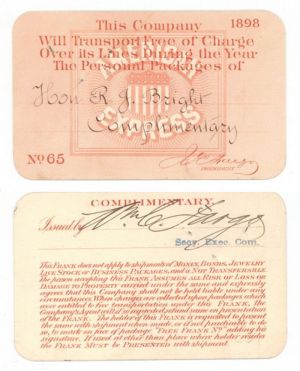 This Company 1898
Will Transport Free of Charge
Over its Lines During the Year
The Personal Packages of
AMERICAN
EXPRESS
Hon R. J. Bright
Complimentary
No 65
Jas. C. Fargo
PRESIDENT
COMPLIMENTARY.
Issued by Wm. C. Fargo
Secy. Exec. Com.
This Frank does not apply to shipments of Money, Bonds, Jewelry
Live Stock or Business Packages, and is Not Transferable
the person accepting this Frank Assumes all Risk of Loss or
Damage to Property carried under the same and expressly
agrees that this Company shall not be held liable under any
circumstances. When charges are collected upon packages which
were entitled to free transportation under this Frank, the
Company's Agent will if so requested, refund same on presentation
of The Frank. The holder of this Frank is requested to present
the same with shipment when made, or if not practicable to do
so, to mark on face of package "Free Frank No" adding his
signature. If used at other than place where holder resides
the Frank Must be Presented with shipment.